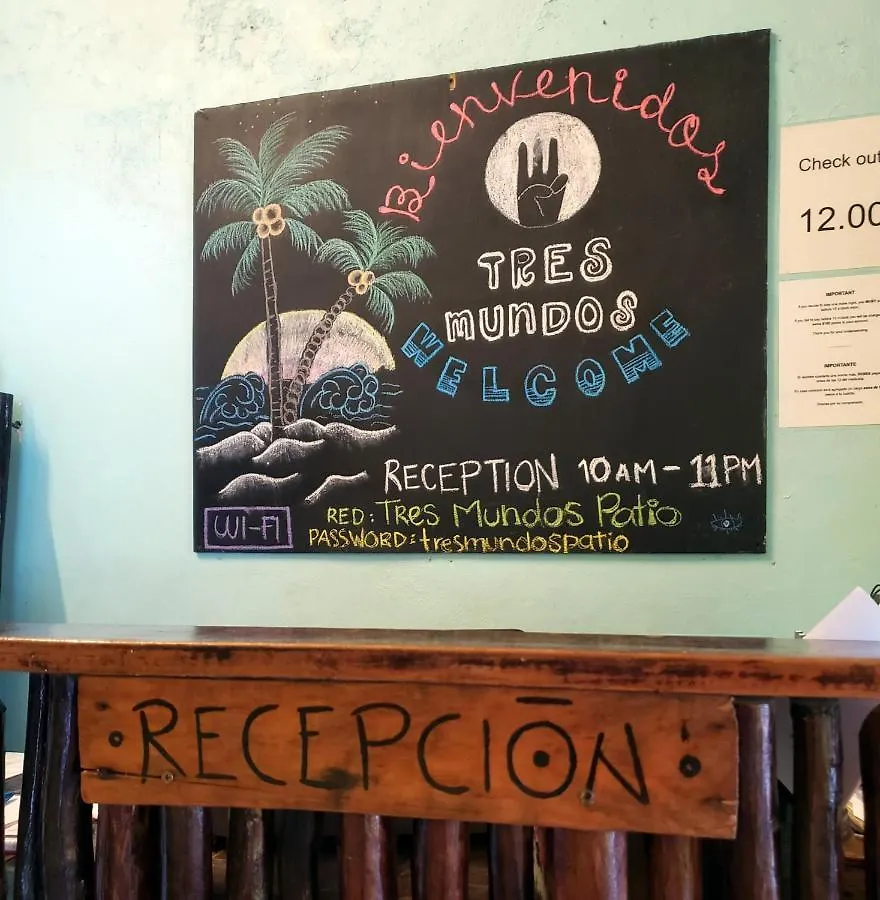 Bienvenidos
TRES
MUNDOS
WELCOME
RECEPTION 10AM - 11PM
WI-FI
RED: Tres Mundos Patio
PASSWORD: tresmundospatio
Check out
12.00
IMPORTANT
IMPORTANTE
RECEPCIŌN